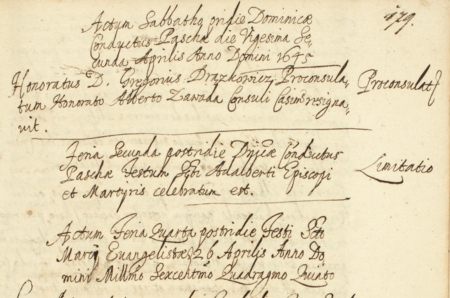 Actum Sabbatho pridie Dominicæ
Conductus Paschæ die Vigesima Se-
cunda Aprilis Anno Domini 1645
179.
Honoratus D. Gregorius Drązkowicz Proconsula-
tum Honorato Alberto Zawada Consuli Casim: resigna-
vit.
Proconsulat
Feria Secunda postridie Dnicæ Conductus
Paschæ Festum Sti Adalberti Episcopi
et Martyris celebratum est.
Limitatio
Actum Feria Quarta postridie Festi Scti
Marci Evangelistæ 26 Aprilis Anno Do-
mini Millmo Sexcentmo Quadragmo Quinto